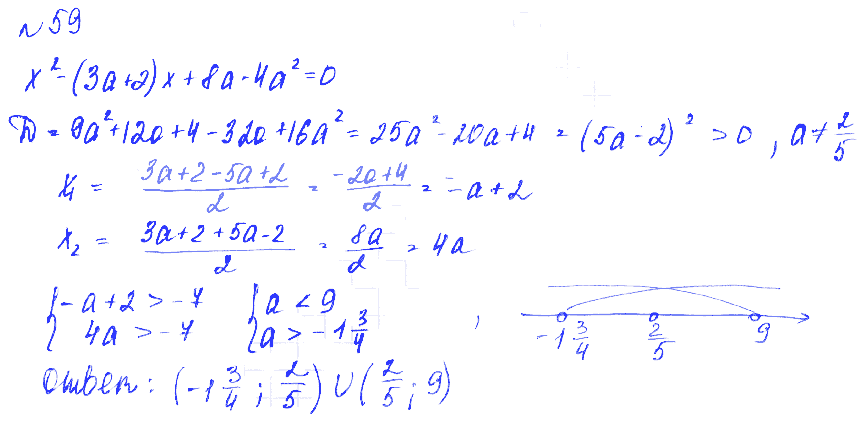 № 59
x² - (3a+2)x + 8a - 4a² = 0
D = 9a² + 12a + 4 - 32a + 16a² = 25a² - 20a + 4 = (5a - 2)² > 0, a ≠ 2/5
x₁ = (3a+2-5a+2)/2 = (-2a+4)/2 = -a+2
x₂ = (3a+2+5a-2)/2 = 8a/2 = 4a
{ -a+2 > -7 { a < 9
{ 4a > -7 { a > -1 3/4 , -1 3/4 2/5 9
Ответ: (-1 3/4; 2/5) ∪ (2/5; 9)